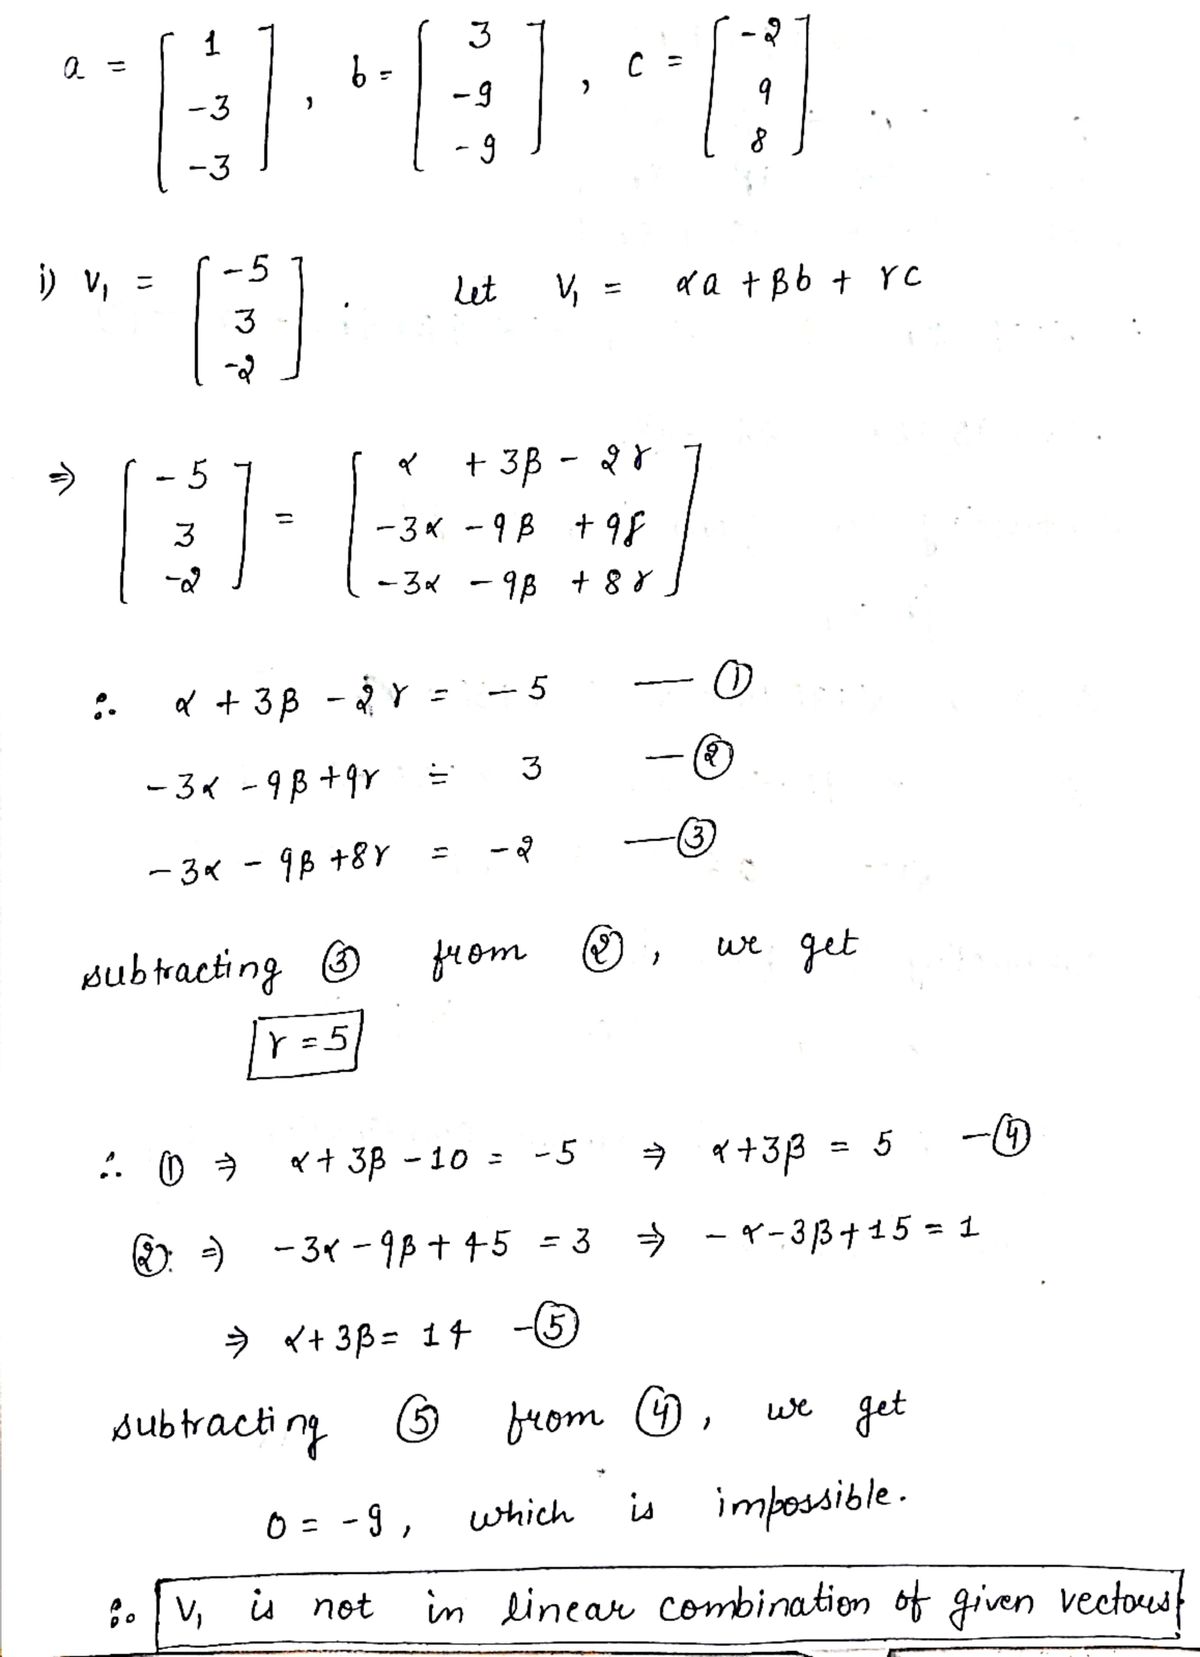 a = [1 -3 -3], b = [3 -9 -9], c = [-2 9 8]
i) V₁ = [-5 3 -2]. Let V₁ = αa + βb + γc
⇒ [-5 3 -2] = [α + 3β - 2γ -3α - 9β + 9γ -3α - 9β + 8γ]
∴ α + 3β - 2γ = -5 — ①
-3α - 9β + 9γ = 3 — ②
-3α - 9β + 8γ = -2 — ③
subtracting ③ from ②, we get
γ = 5
∴ ① ⇒ α + 3β - 10 = -5 ⇒ α + 3β = 5 — ④
② ⇒ -3α - 9β + 45 = 3 ⇒ -α - 3β + 15 = 1
⇒ α + 3β = 14 — ⑤
subtracting ⑤ from ④, we get
0 = -9, which is impossible.
∴ V₁ is not in linear combination of given vectors